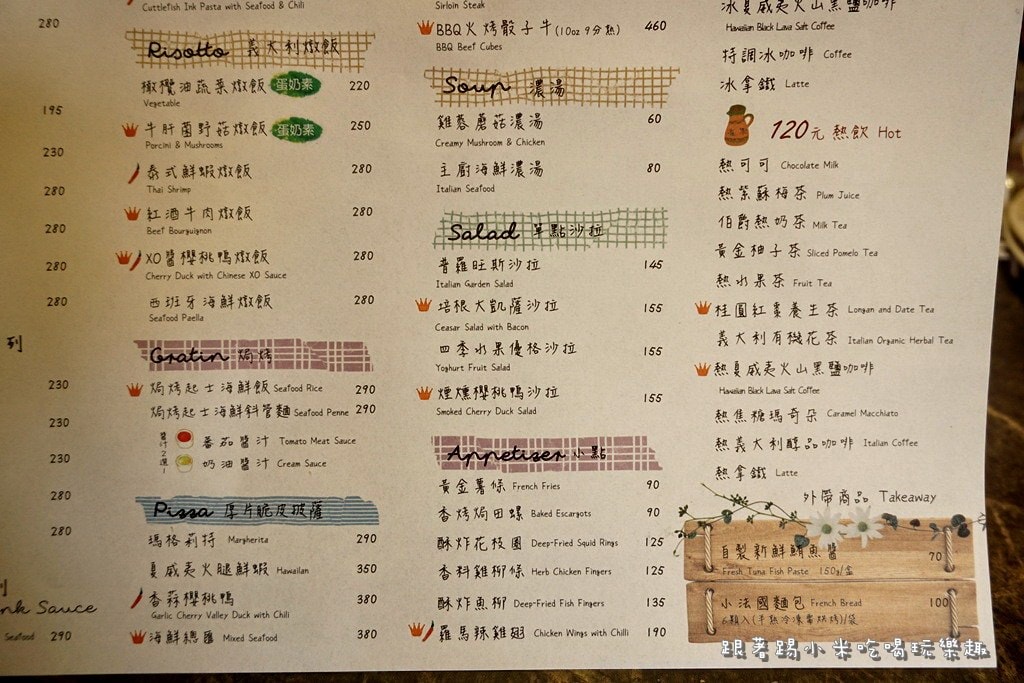 Cuttlefish Ink Pasta with Seafood & Chili
280
195
230
280
280
280
280
列
230
230
230
280
280
nk Sauce
Seafood 290
Risotto 義大利燉飯
橄欖油蔬菜燉飯 蛋奶素 220
Vegetable
牛肝菌野菇燉飯 蛋奶素 250
Porcini & Mushrooms
泰式鮮蝦燉飯 280
Thai Shrimp
紅酒牛肉燉飯 280
Beef Bourguignon
XO醬櫻桃鴨燉飯 280
Cherry Duck with Chinese XO Sauce
西班牙海鮮燉飯 280
Seafood Paella
Gratin 焗烤
焗烤起士海鮮飯 Seafood Rice 290
焗烤起士海鮮斜管麵 Seafood Penne 290
醬汁2選1
番茄醬汁 Tomato Meat Sauce
奶油醬汁 Cream Sauce
Pizza 厚片脆皮披薩
瑪格莉特 Margherita 290
夏威夷火腿鮮蝦 Hawaiian 350
香蒜櫻桃鴨 380
Garlic Cherry Valley Duck with Chili
海鮮總匯 Mixed Seafood 380
Sirloin Steak
BBQ火烤骰子牛(10oz 9分熟) 460
BBQ Beef Cubes
Soup 濃湯
雞蓉蘑菇濃湯 60
Creamy Mushroom & Chicken
主廚海鮮濃湯 80
Italian Seafood
Salad 單點沙拉
普羅旺斯沙拉 145
Italian Garden Salad
培根大凱薩沙拉 155
Ceasar Salad with Bacon
四季水果優格沙拉 155
Yoghurt Fruit Salad
煙燻櫻桃鴨沙拉 155
Smoked Cherry Duck Salad
Appetiser 小點
黃金薯條 French Fries 90
香烤焗田螺 Baked Escargots 90
酥炸花枝圈 Deep-Fried Squid Rings 125
香料雞柳條 Herb Chicken Fingers 125
酥炸魚柳 Deep-Fried Fish Fingers 135
羅馬辣雞翅 Chicken Wings with Chilli 190
冰夏威夷火山黑鹽咖啡
Hawaiian Black Lava Salt Coffee
特調冰咖啡 Coffee
冰拿鐵 Latte
120元 熱飲 Hot
熱可可 Chocolate Milk
熱紫蘇梅茶 Plum Juice
伯爵熱奶茶 Milk Tea
黃金柚子茶 Sliced Pomelo Tea
熱水果茶 Fruit Tea
桂圓紅棗養生茶 Longan and Date Tea
義大利有機花茶 Italian Organic Herbal Tea
熱夏威夷火山黑鹽咖啡
Hawaiian Black Lava Salt Coffee
熱焦糖瑪奇朵 Caramel Macchiato
熱義大利醇品咖啡 Italian Coffee
熱拿鐵 Latte
外帶商品 Takeaway
自製新鮮鮪魚醬 70
Fresh Tuna Fish Paste 150g/盒
小法國麵包 French Bread 100
6顆入(半熟冷凍需烘烤)/袋
跟著踢小米吃喝玩樂趣